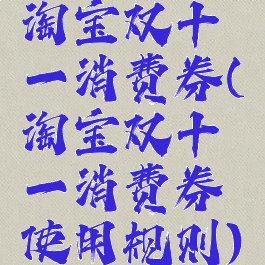 淘宝双十
一消费券(
淘宝双十
一消费券
使用规则)